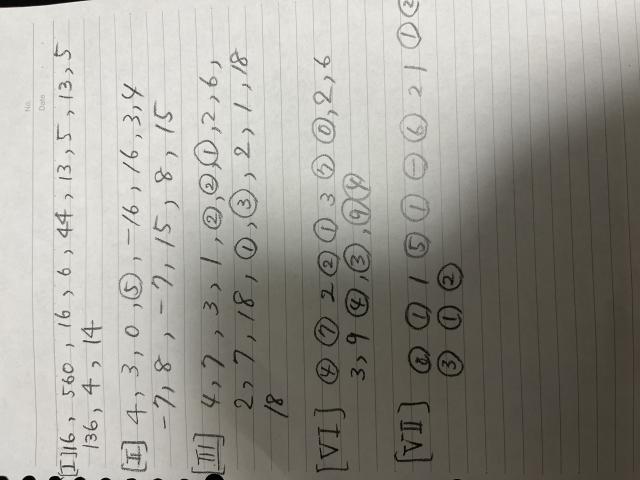 No.
Date
[I] 16, 560, 16, 6, 44, 13, 5, 13, 5
136, 4, 14
[II] 4, 3, 0, ⑤, -16, 16, 3, 4
-7, 8, -7, 15, 8, 15
[III] 4, 7, 3, 1, ②, ②, ①, 2, 6,
2, 7, 18, ①, ③, 2, 1, 18
18
[VI] ④ ⑦ 2 ② ① 3 ⓪, 2, 6
3, 9 ④, ③,
[VII] ① 1 ⑤ ① ⊖ ⑥ 2 1 ① ②
③ ① ②